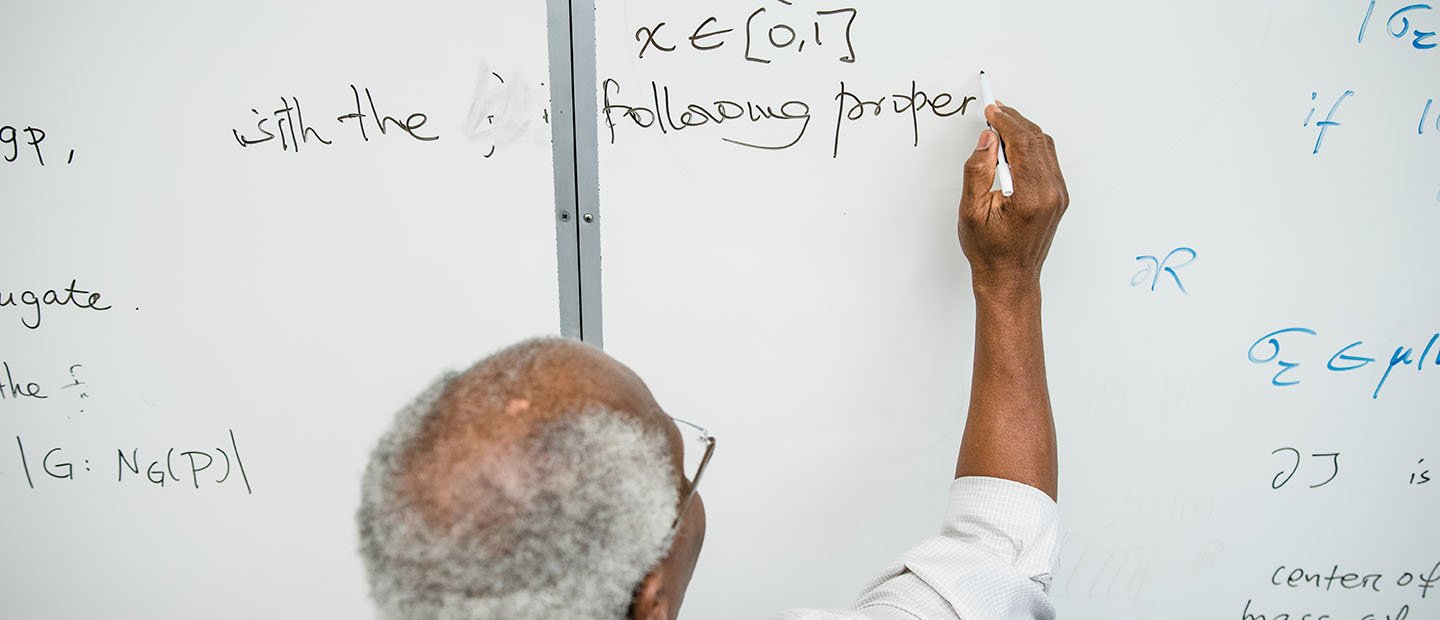 x ∈ [0,1]
gp, with the ; following proper
ugate.
the
|G: N_G(P)|
|σ_Σ
if
∂R
σ_Σ ∈ μ
∂J is
center of
mass of